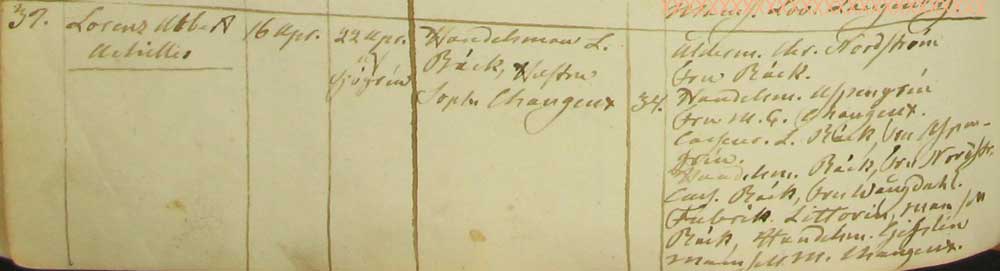 37. Lorenz Abb. A
Achilles
16 Apr.
22 Apr.
Sjögrén
Handelsman L.
Bäck, Hustru
Soph. Changeux
34.
Ålderm. Chr. Nordström
Fru Bäck.
Handelsm. Aspengrén
Fru M. G. Changeux.
L. Bäck, Fru Aspen-
grén.
Handelsm. Bäck, Fru Nordstr.
Carl Bäck, Fru Wångdahl.
Fabrik. Littorin, mamsell
Bäck, Handelsm. Gisslén
mamsell M. Changeux.